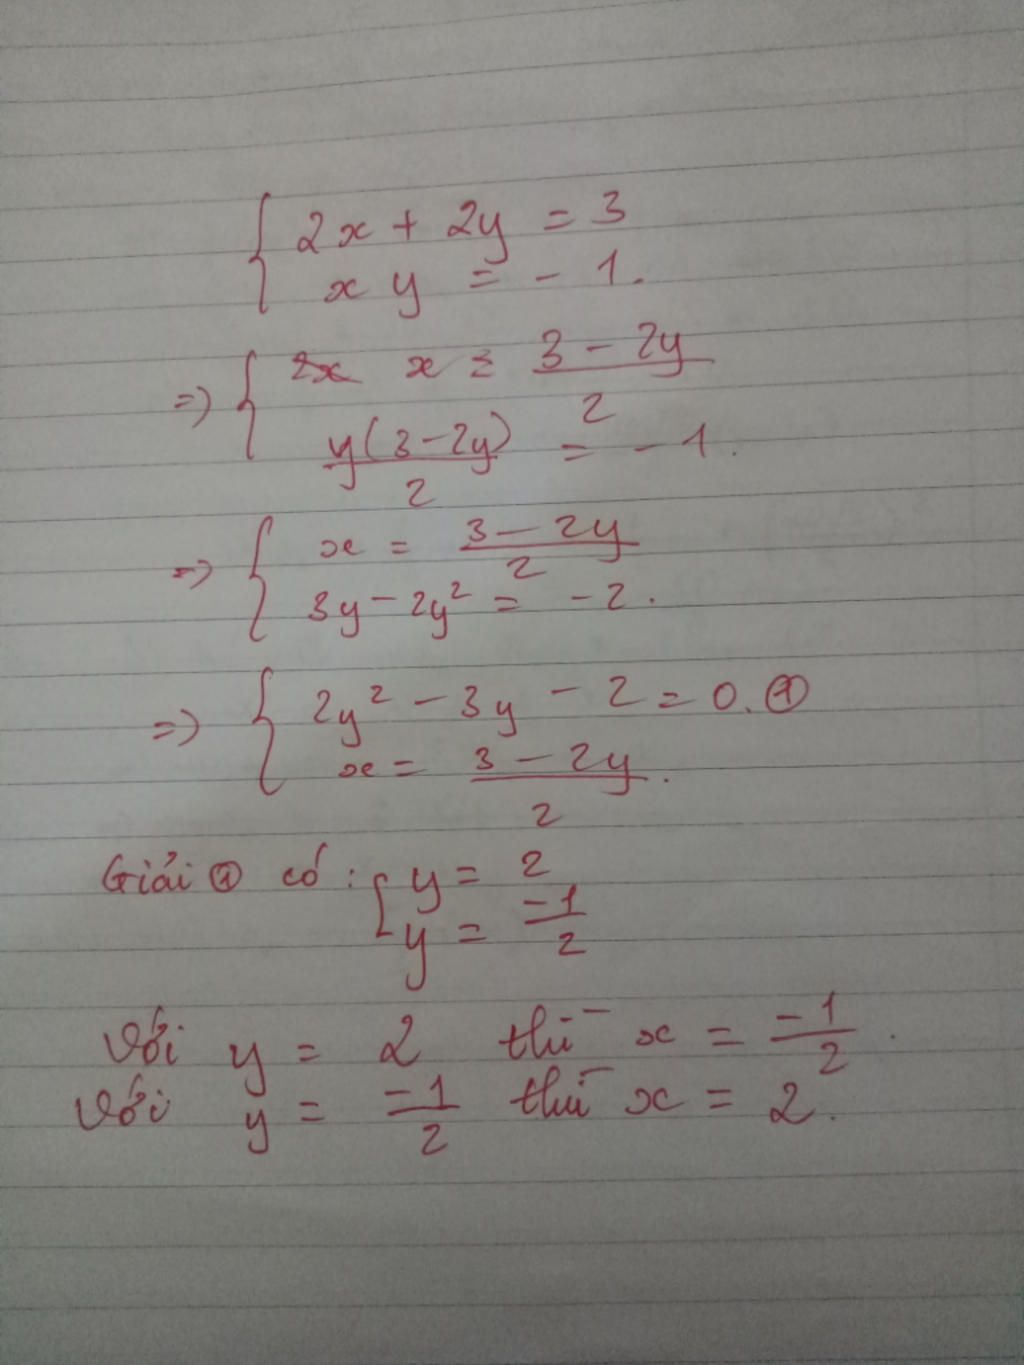 { 2x + 2y = 3
x y = - 1.
=> { 2x x = 3 - 2y / 2
y(3-2y) / 2 = - 1.
=> { x = 3 - 2y / 2
3y - 2y² = - 2.
=> { 2y² - 3y - 2 = 0. ①
x = 3 - 2y / 2.
Giải ① có: [ y = 2
y = -1/2
Với y = 2 thì x = -1/2.
Với y = -1/2 thì x = 2.